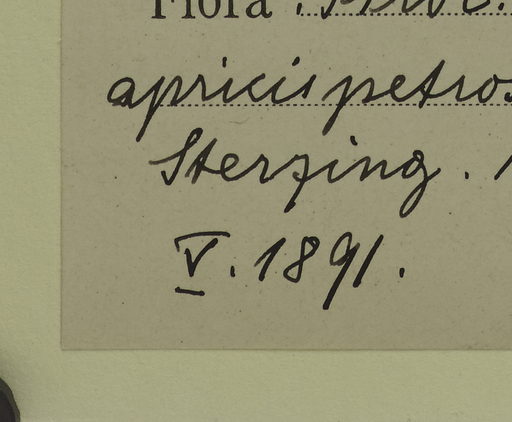 Flora
apricis petros
Sterzing.
V. 1891.